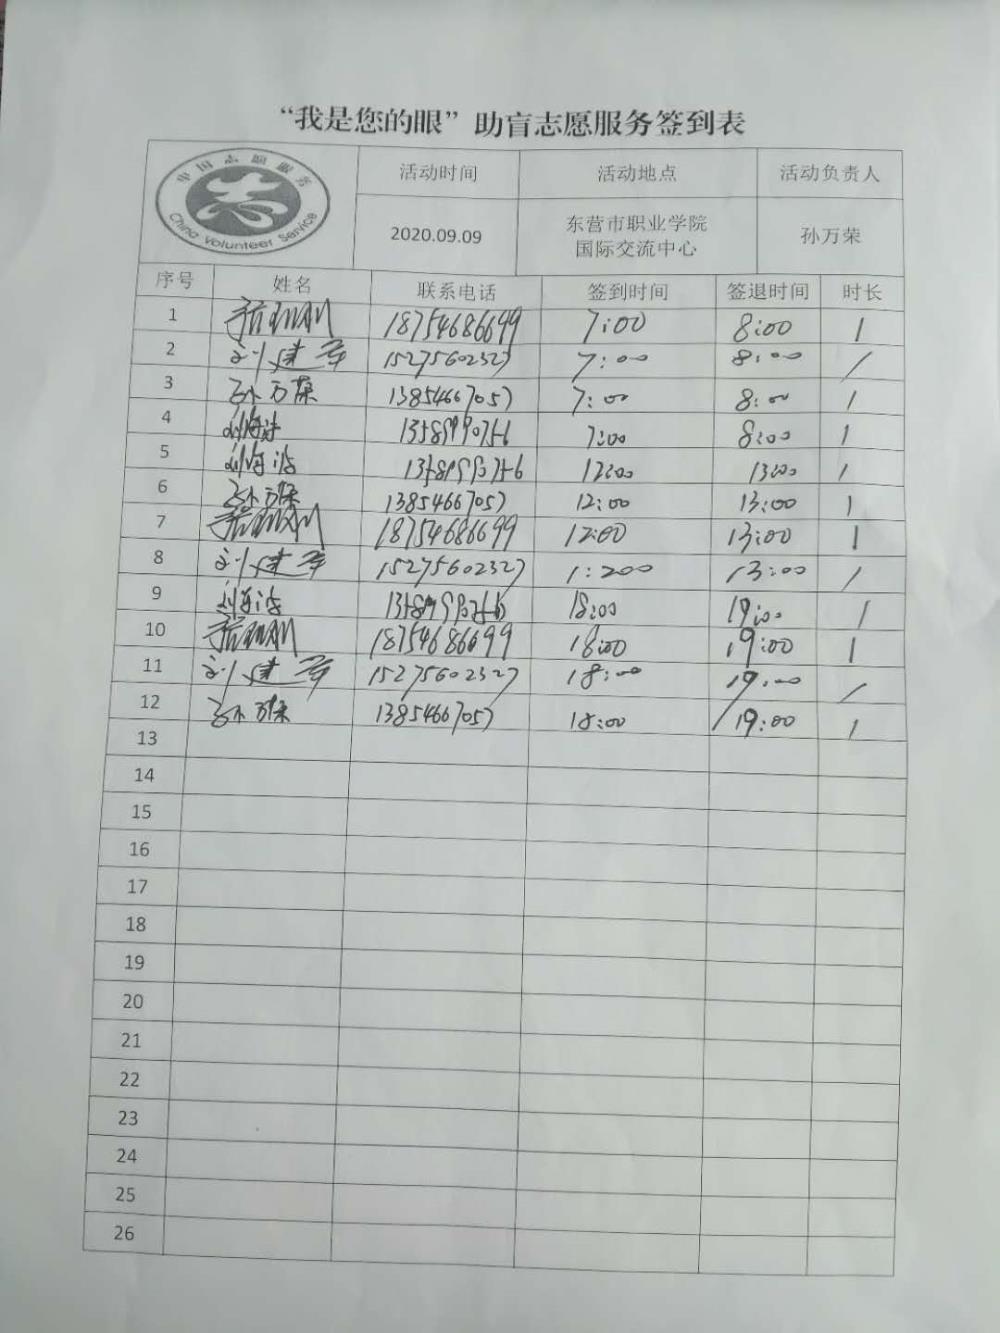 “我是您的眼”助盲志愿服务签到表
中国志愿服务
China Volunteer Service
活动时间 活动地点 活动负责人
2020.09.09 东营市职业学院 国际交流中心 孙万荣
序号 姓名 联系电话 签到时间 签退时间 时长
1 18754686699 7:00 8:00 1
2 15275602327 7:00 8:00 1
3 孙万荣 13854667057 7:00 8:00 1
4 刘海波 7:00 8:00 1
5 刘海波 12:00 13:00 1
6 孙万荣 13854667057 12:00 13:00 1
7 18754686699 12:00 13:00 1
8 15275602327 1:200 13:00 1
9 刘海波 18:00 19:00 1
10 18754686699 18:00 19:00 1
11 15275602327 18:00 19:00 1
12 孙万荣 13854667057 18:00 19:00 1
13
14
15
16
17
18
19
20
21
22
23
24
25
26